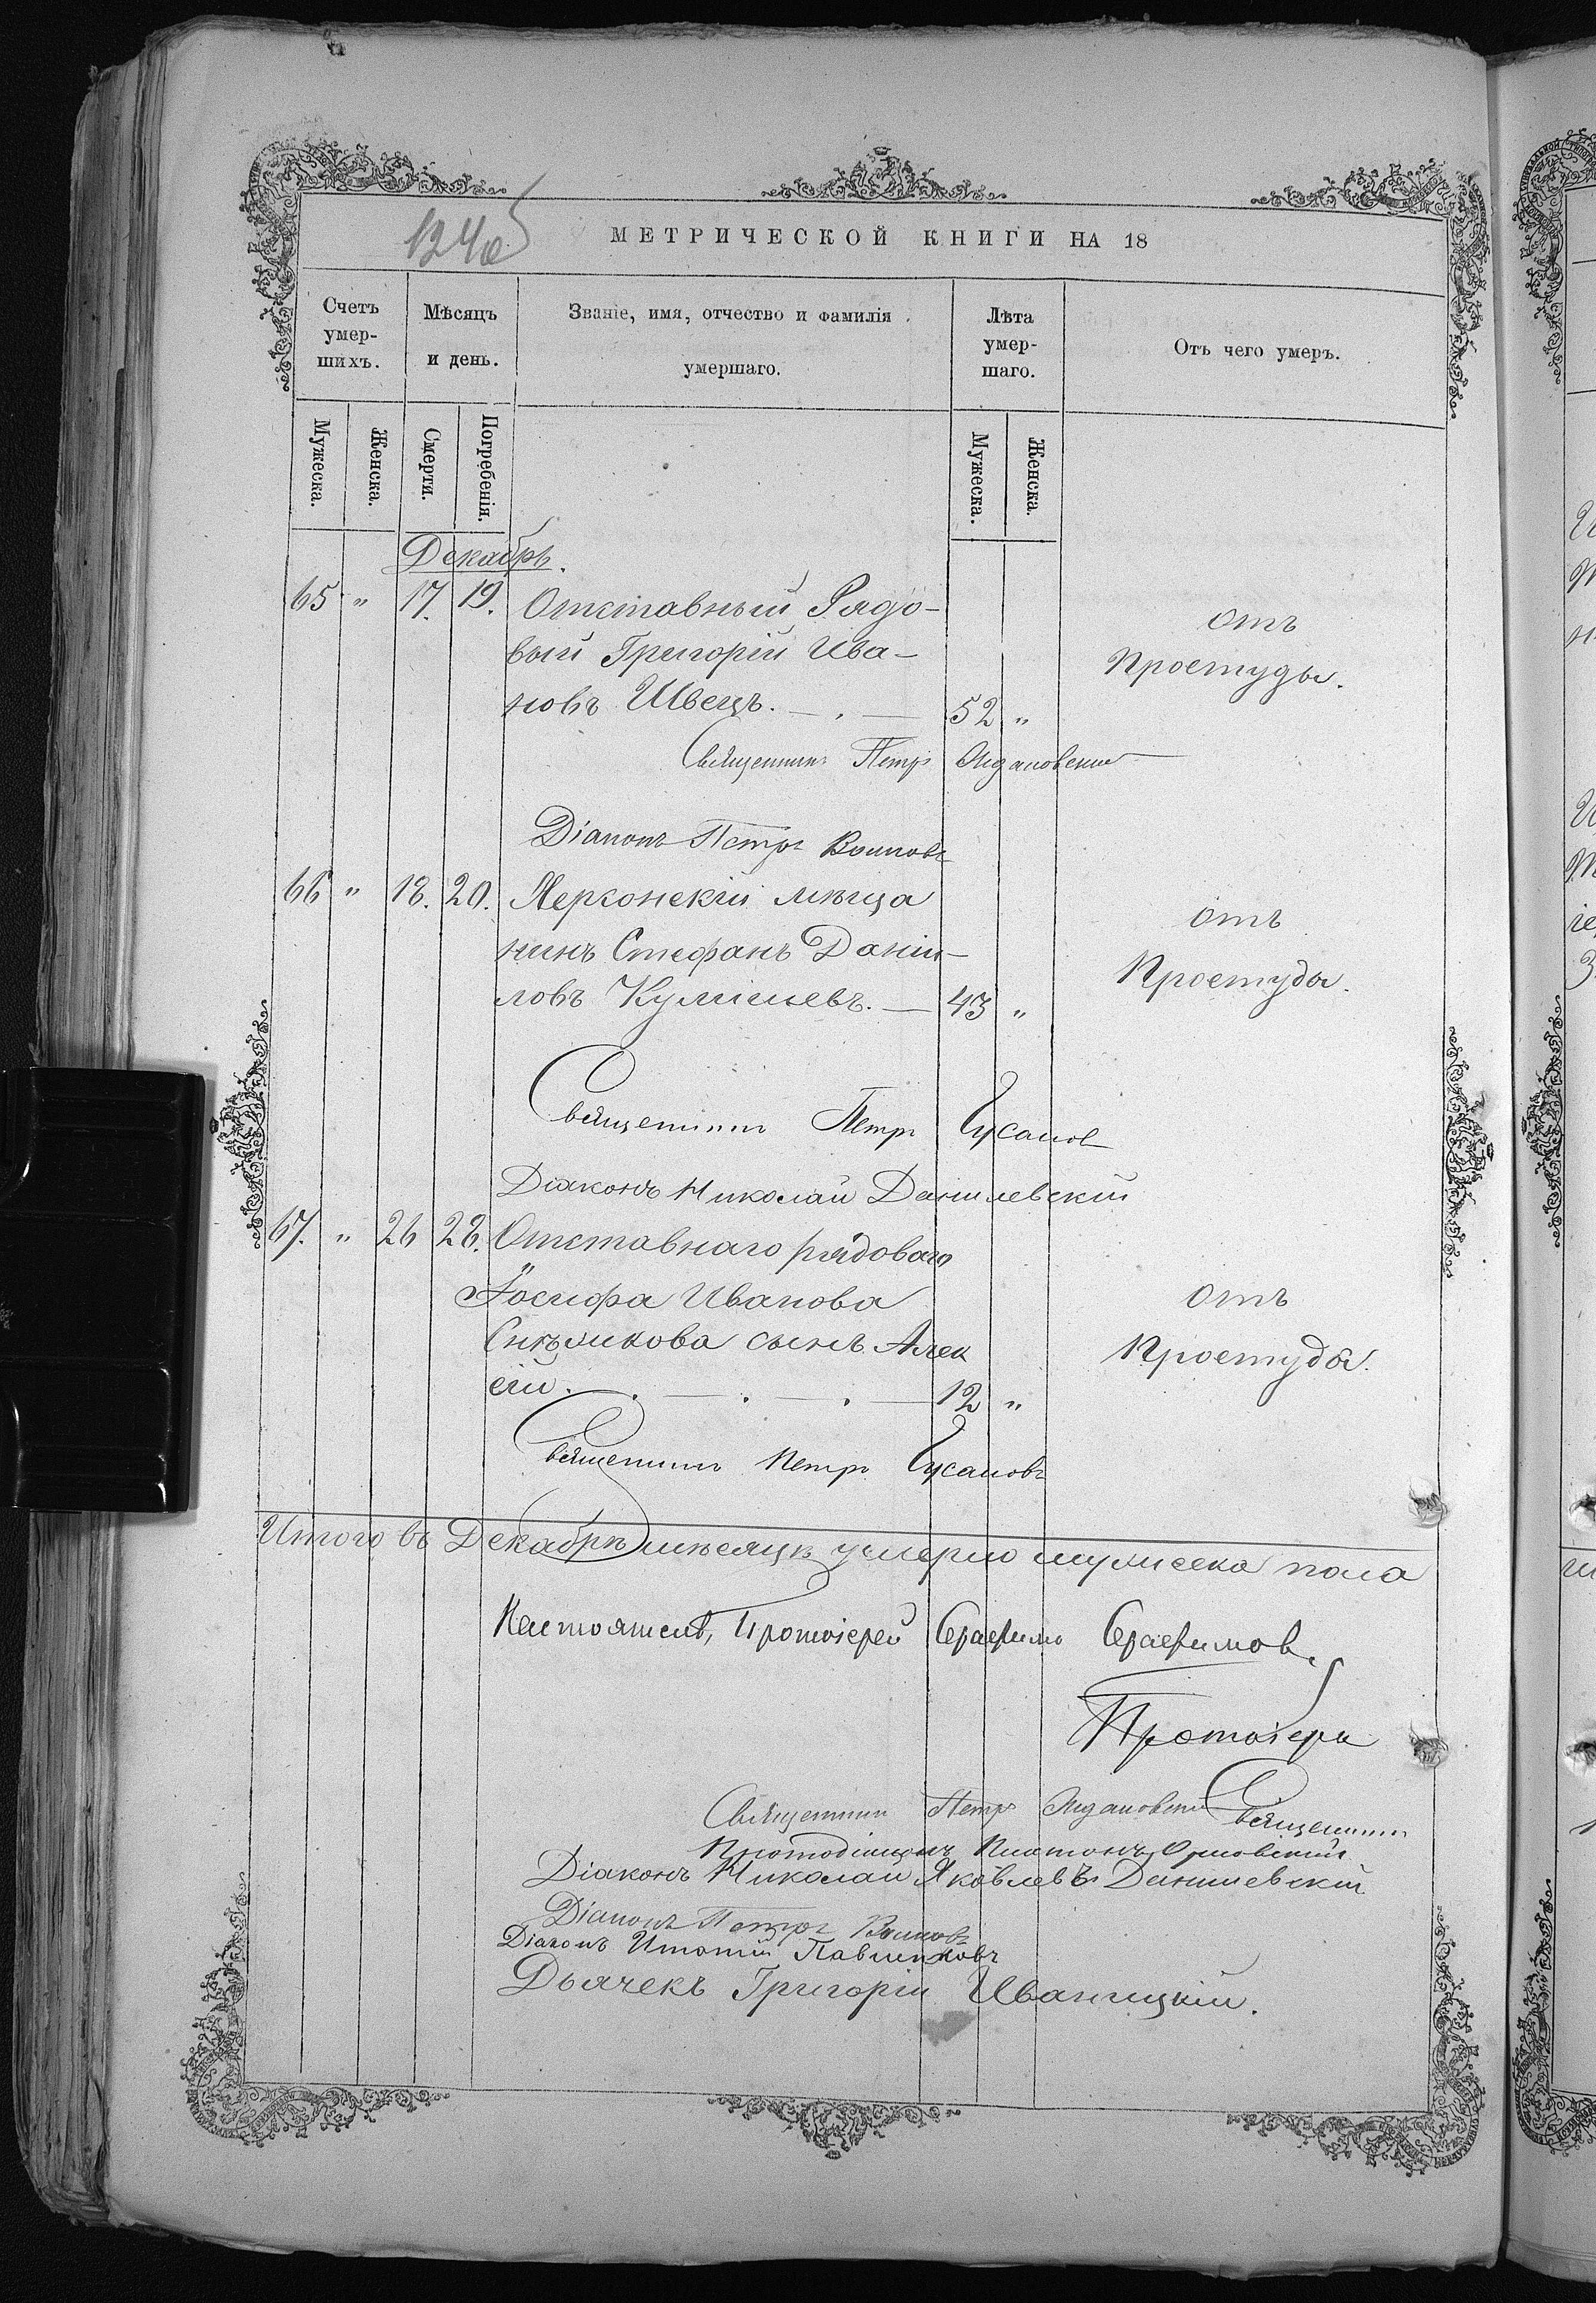 124об
МЕТРИЧЕСКОЙ КНИГИ НА 18
Счетъ умер-шихъ.
Мѣсяцъ и день.
Званіе, имя, отчество и фамилія умершаго.
Лѣта умер-шаго.
Отъ чего умеръ.
Мужеска. Женска. Смерти. Погребенія. Мужеска. Женска.
Декабрь.
65 " 17. 19. Отставный Рядо-
вый Григорій Ива-
новъ Швецъ. — . — 52 "
отъ
Простуды.
Священникъ Петръ
Діаконъ Петръ
66 " 18. 20. Херсонскій мѣща
нинъ Стефанъ Даніи-
ловъ — 43 "
отъ
Простуды.
Священникъ Петръ Гусаковъ
Діаконъ Николай Данилевскій
67. " 26 28. Отставнаго рядоваго
Іосифа Иванова
сынъ Алек
сій. . — . — . — 12 "
отъ
Простуды.
Священникъ Петръ Гусаковъ
Итого въ Декабрѣ мѣсяцѣ умерло мужеска пола
Настоятель, Протоіерей Серафимъ Серафимовъ
Протоіерей
Священникъ Петръ Священникъ
Протодіаконъ Платонъ
Діаконъ Николай Яковлевъ Данилевскій
Діаконъ Петръ
Діаконъ Игнатій Павликовъ
Дьячекъ Григорій Иваницкій.